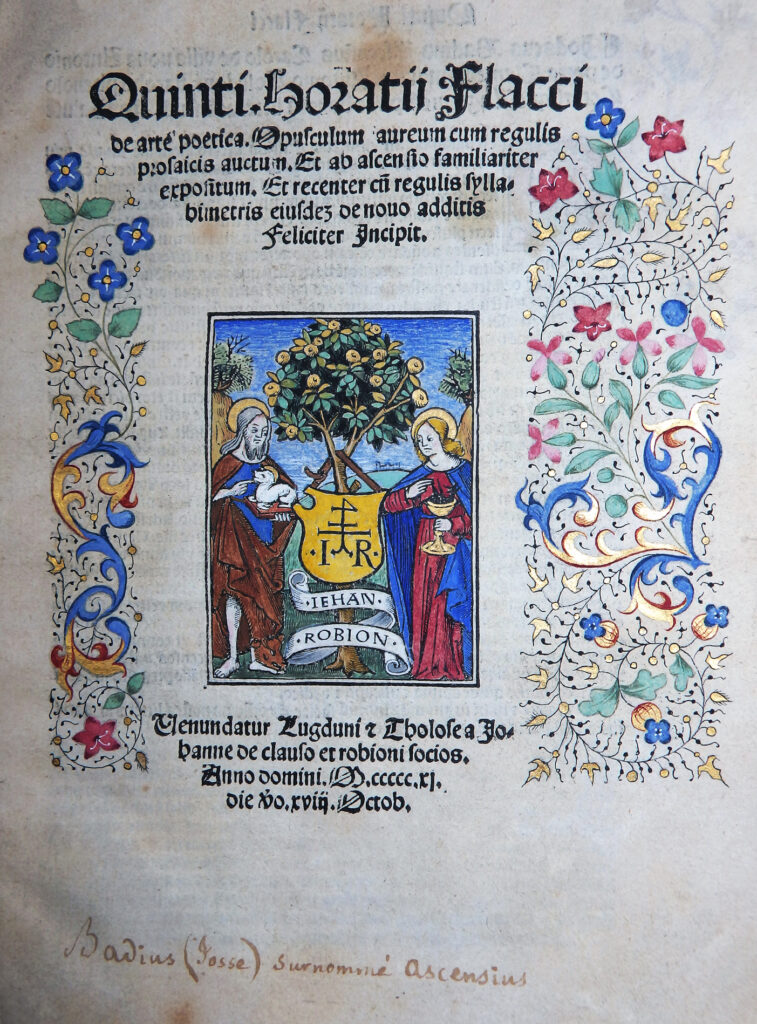 Quinti. Horatij Flacci
de arte poetica. Opusculum aureum cum regulis
prosaicis auctum. Et ab ascensio familiariter
expositum. Et recenter cū regulis sylla-
bimetris eiusdez de nouo additis
Feliciter Incipit.
·I·R·
·IEHAN·
ROBION·
Uenundatur Lugduni ⁊ Tholose a Jo-
hanne de clauso et robioni socios.
Anno domini. M.ccccc.xj.
die v̄o.xviij.Octob.
Badius (Josse) surnommé Ascensius